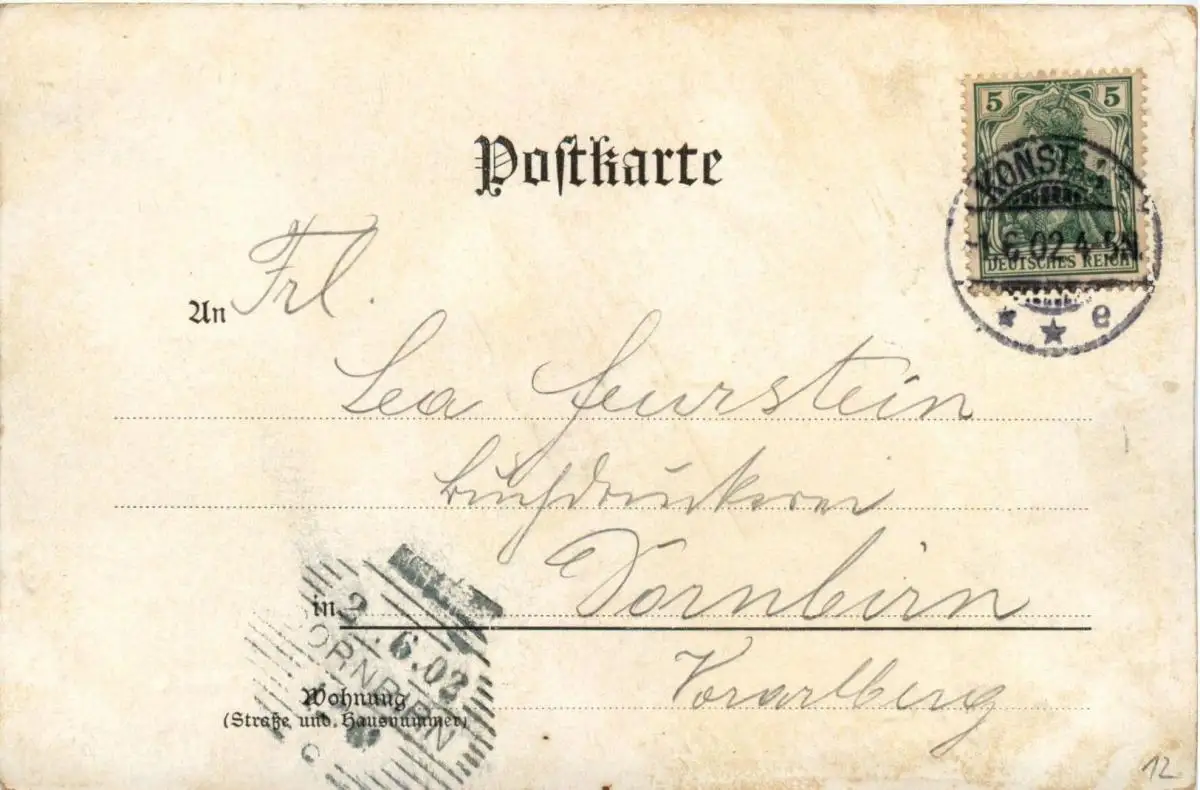 Postkarte
5 5
DEUTSCHES REICH
KONST
1.6.02.4-5N.
* * e
An Frl.
Lea Feurstein
Buchdruckerei
in Dornbirn
Vorarlberg
2.6.02
DORNBIRN
c
Wohnung
(Straße und Hausnummer)
12